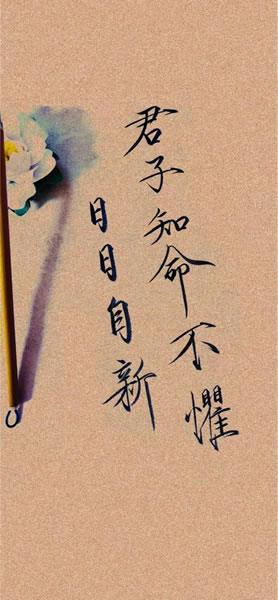 君子知命不懼
日日自新